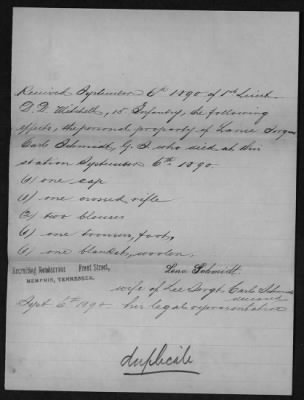 Received September 6th 1890 of 1st Lieut.
D. D. Mitchell, 15 Infantry, the following
effects, the personal property of Lance Sergt
Carlo Schmidt, G. S. who died at this
station September 6th 1890.
(1) one cap
(1) one rifle
(2) two blouses
(1) one trousers, foot,
(1) one blanket, woolen.
Recruiting Rendezvous Front Street,
MEMPHIS, TENNESSEE.
Lena Schmidt.
wife of Lce Sergt. Carlo Schmidt
Sept 6th 1890 her legal representative
duplicate